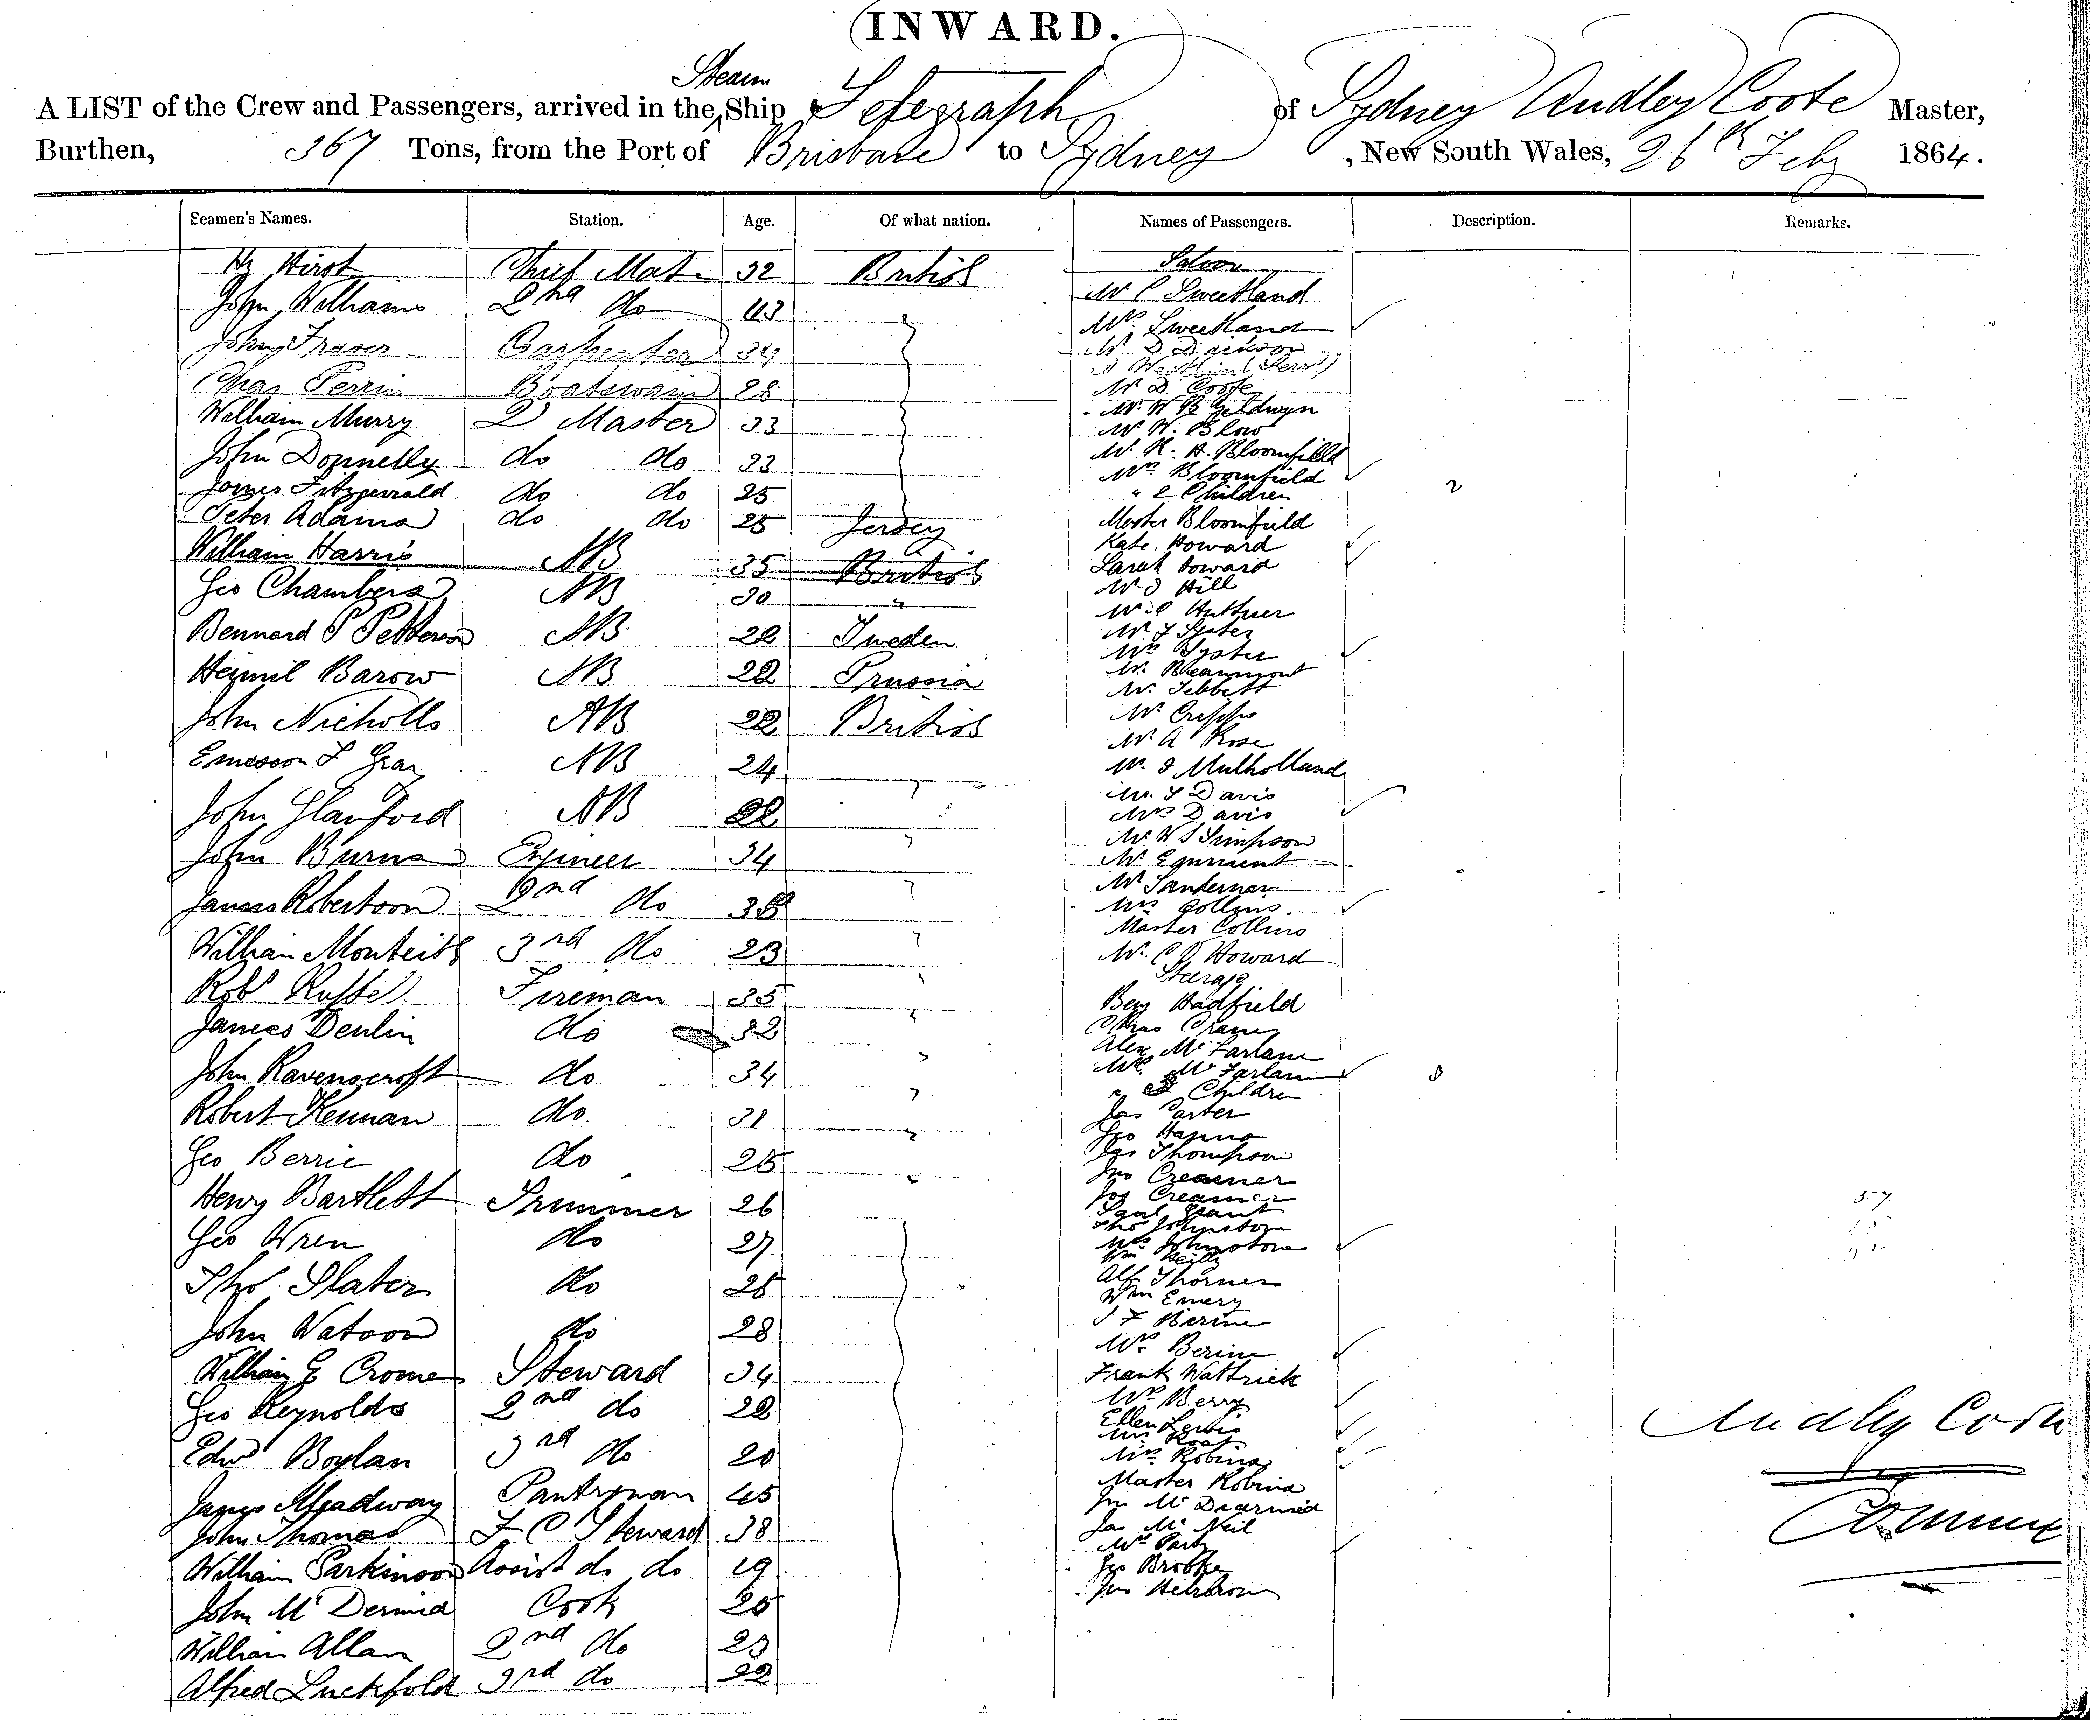 INWARD.
Steam
A LIST of the Crew and Passengers, arrived in the Ship Telegraph of Sydney Audley Coote Master,
Burthen, 367 Tons, from the Port of Brisbane to Sydney, New South Wales, 26th Feby 1864.
Seamen's Names. Station. Age. Of what nation. Names of Passengers. Description. Remarks.
Hy Hirst Chief Mate 32 British
John Williams 2nd do 43
John Fraser Carpenter 34
Chas Perrin Boatswain 28
William Murry Q Master 33
John Donnelly do do 33
James Fitzgerald do do 25
Peter Adams do do 25 Jersey
William Harris AB 35 British
Geo Chambers AB 30 "
Bennard P Petterson AB 22 Sweden
Heimil Barow AB 22 Prussia
John Nicholls AB 22 British
Emesson F Gray AB 24 "
John Glanford AB 22
John Burns Engineer 34 "
James Robertson 2nd do 38 "
William Monteith 3rd do 23 "
Robt Russel Fireman 35 "
James Denlin do 32 "
John Ravenscroft do 34 "
Robert Kennan do 31 "
Geo Berrie do 25 "
Henry Bartlett Trimmer 26
Geo Wren do 27
Thos Slater do 25
John Watson do 28
William G Crome Steward 34
Geo Reynolds 2nd do 22
Edwd Boylan 3rd do 20
James Meadway Pantryman 45
John Thomas F C Steward 38
William Parkinson Assist do do 19
John McDermid Cook 25
William Allan 2nd do 23
Alfred Luckfold 3rd do 22
Saloon
Mr C Sweetland
Mrs Sweetland
Mr D Dickson
Mr D Coote
Mr W B Geldwyn
Mr W. Blow
Mr R. H. Bloomfield
Mrs Bloomfield
" 2 Children 2
Master Bloomfield
Kate Howard
Sarah Howard
Mr J Hill
Mr Huttner
Mr J Syster
Mrs Syster
Mr Beaumont
Mr Tebbett
Mr Cripps
Mr A Rose
Mr J Mulholland
Mr J Davis
Mrs Davis
Mr W J Simpson
Mr Egurment
Mr Sanderman
Mrs Collins
Master Collins
Mr C J Howard
Steerage
Benj Hadfield
Chas Crane
Alex McFarlane
Mrs McFarlane
" 3 Children 3
Jas Carter
Geo Hanna
Jas Thompson
Jno Creamer
Jos Creamer
Saml Grant
Thos Johnston
Mrs Johnston
Wm Reilly
Alf Thorner
Wm Emery
J F Berine
Mrs Berine
Frank Wattrick
Mrs Berry
Ellen Lewis
Mrs Robina
Master Robina
Jno McDearmid
Ja McNeil
Mrs Park
Geo Brooke
57
Audley Coote
Commr